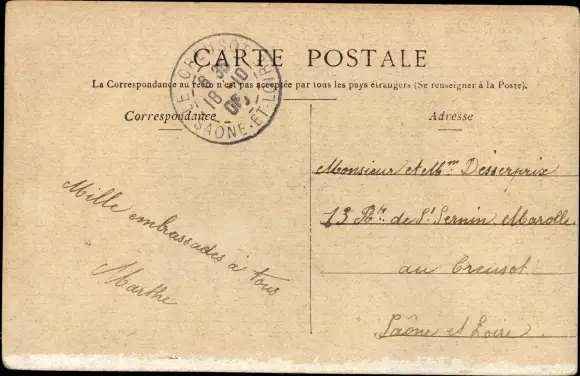 CARTE POSTALE
La Correspondance au recto n'est pas acceptée par tous les pays étrangers (Se renseigner à la Poste).
LE CREUSOT
18 10
SAONE-ET-LOIRE
Correspondance
Adresse
Mille embrassades à tous
Marthe
Monsieur et Mme Desserprix
13 Rte de St Sernin Marolle
au Creusot
Saône et Loire